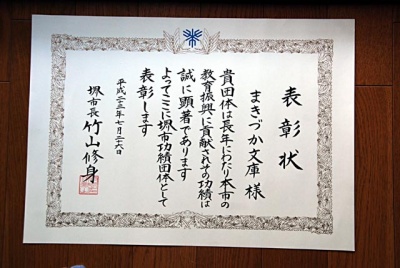 表彰状
まきづか文庫 様
貴団体は長年にわたり本市の
教育振興に貢献されその功績は
誠に顕著であります
よってここに堺市功績団体として
表彰します
平成二十五年七月二十六日
堺市長 竹山修身